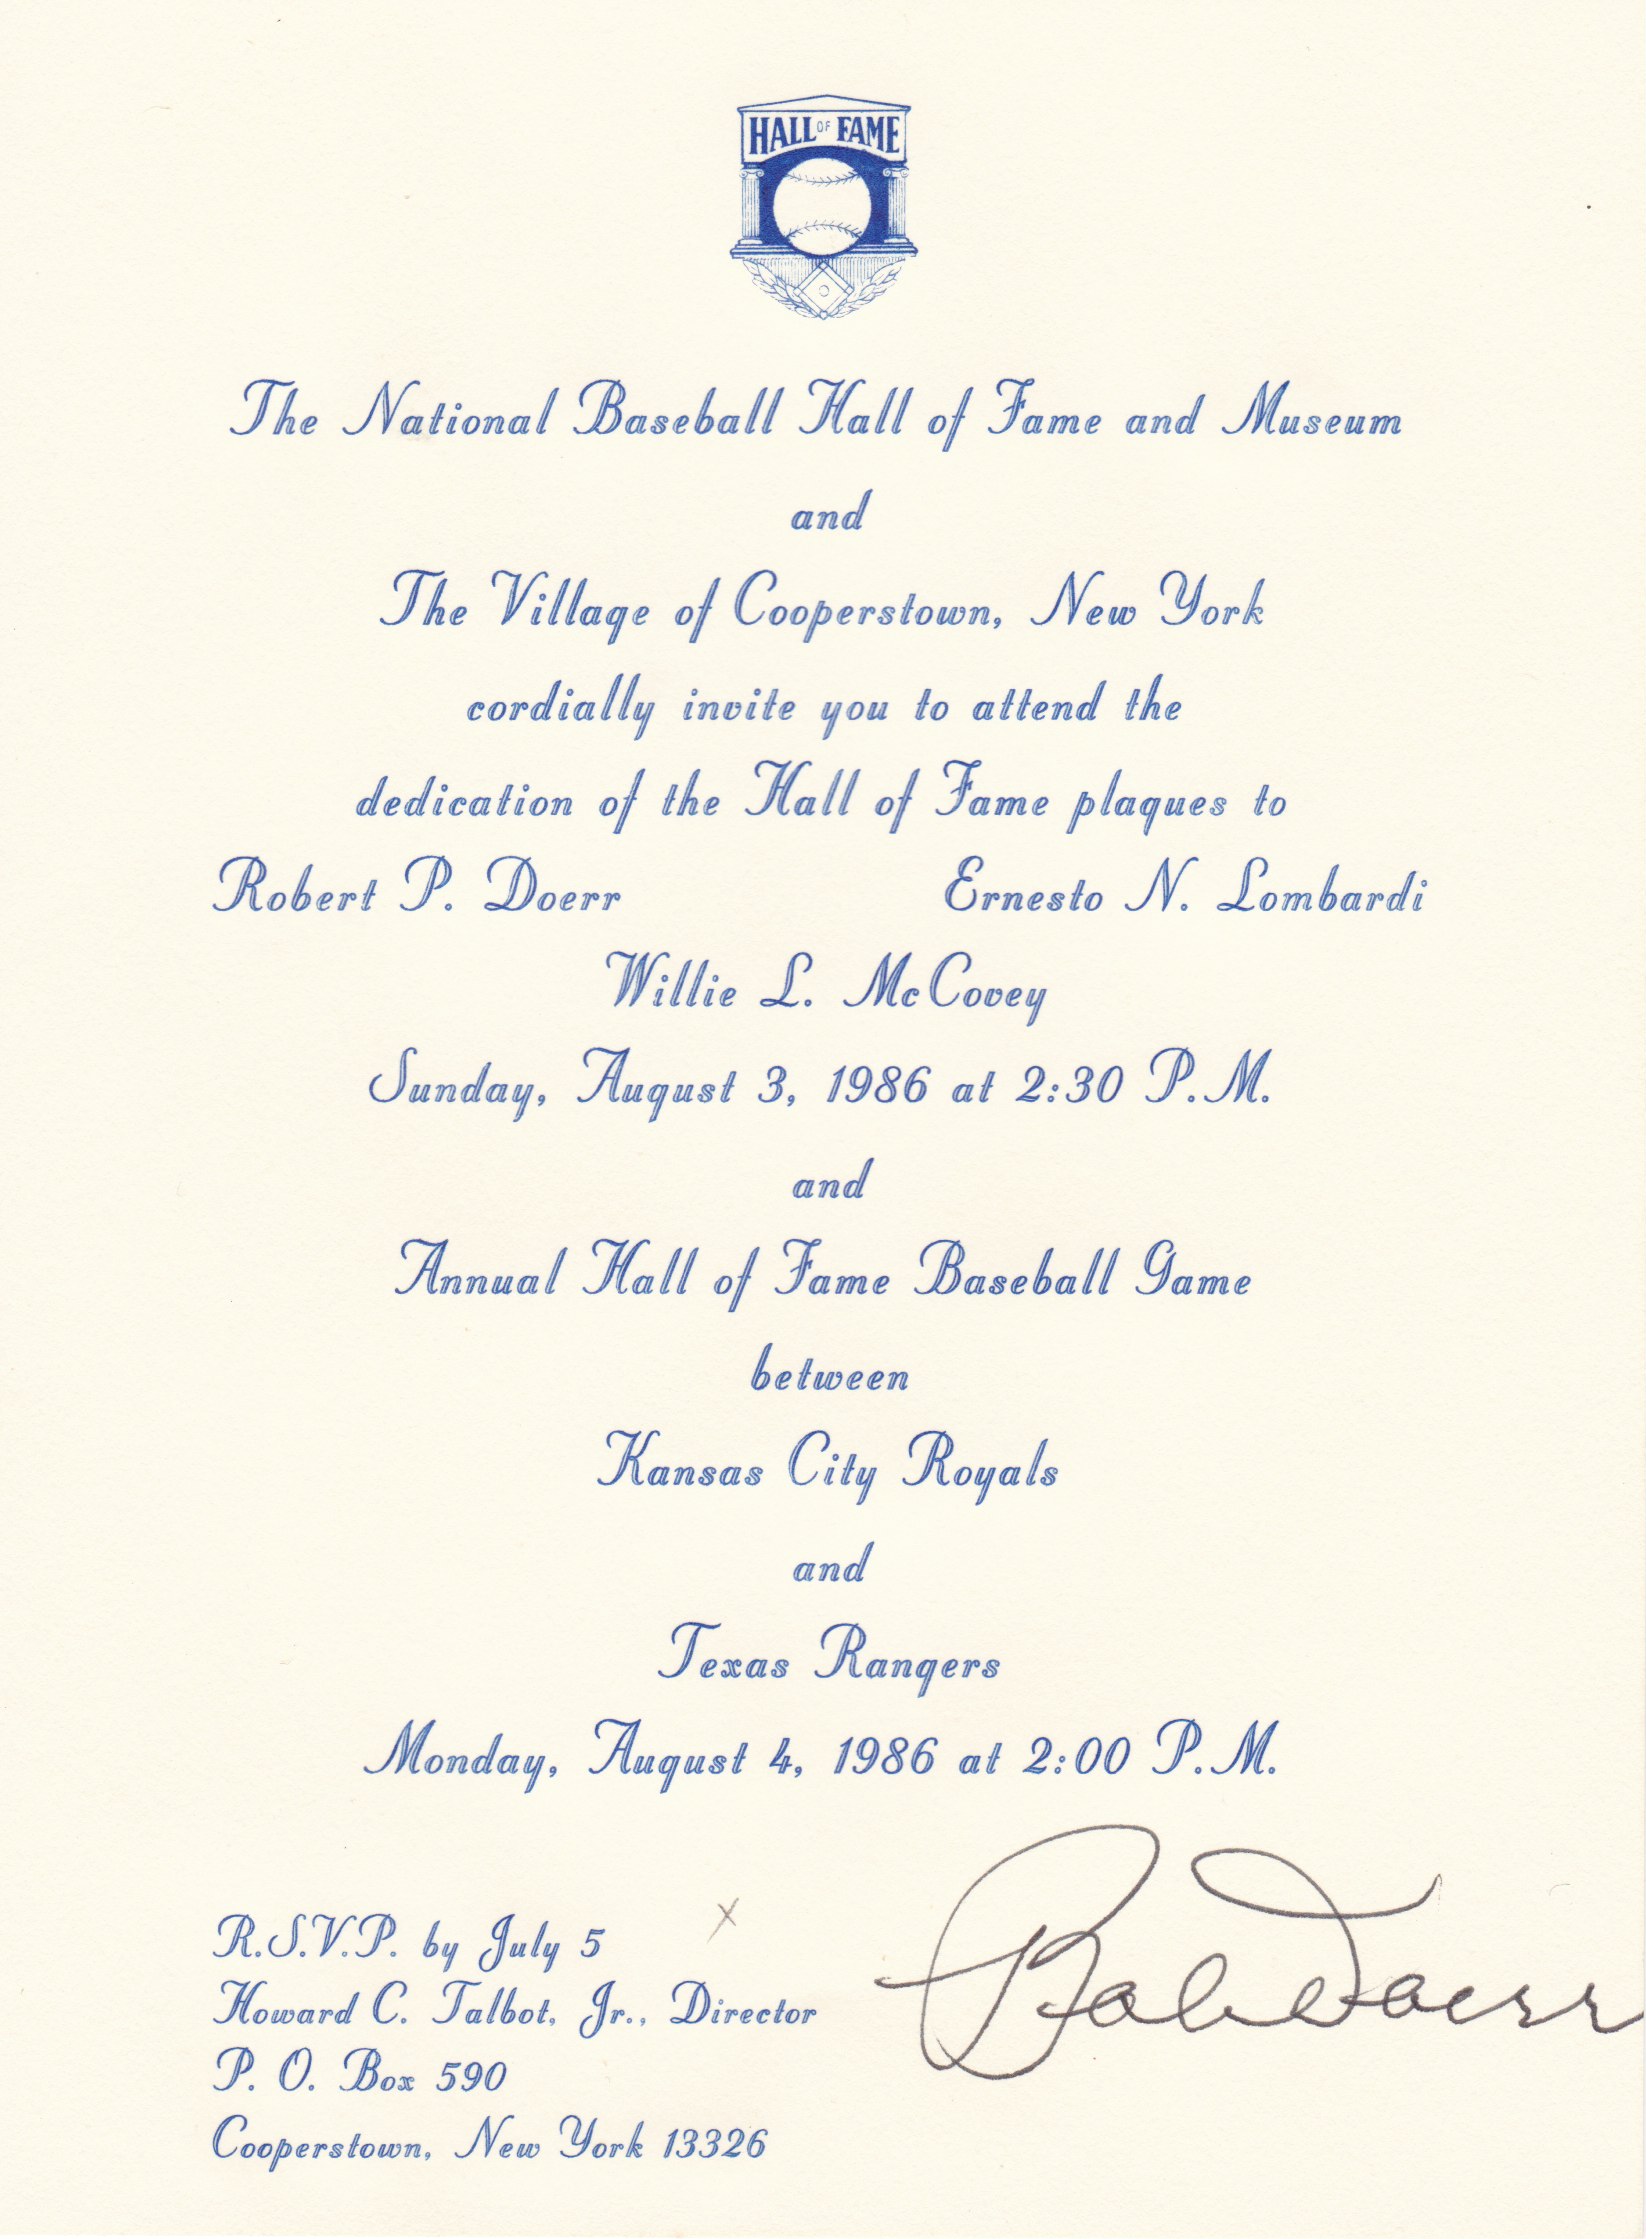 HALL OF FAME
The National Baseball Hall of Fame and Museum
and
The Village of Cooperstown, New York
cordially invite you to attend the
dedication of the Hall of Fame plaques to
Robert P. Doerr Ernesto N. Lombardi
Willie L. McCovey
Sunday, August 3, 1986 at 2:30 P.M.
and
Annual Hall of Fame Baseball Game
between
Kansas City Royals
and
Texas Rangers
Monday, August 4, 1986 at 2:00 P.M.
R.S.V.P. by July 5 x
Howard C. Talbot, Jr., Director
P. O. Box 590
Cooperstown, New York 13326
Bob Doerr